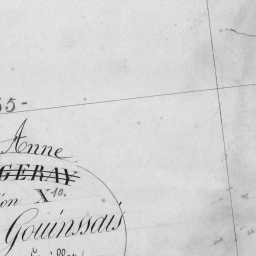 5-
Anne
GERAY
ion X 10.
Gouinssais